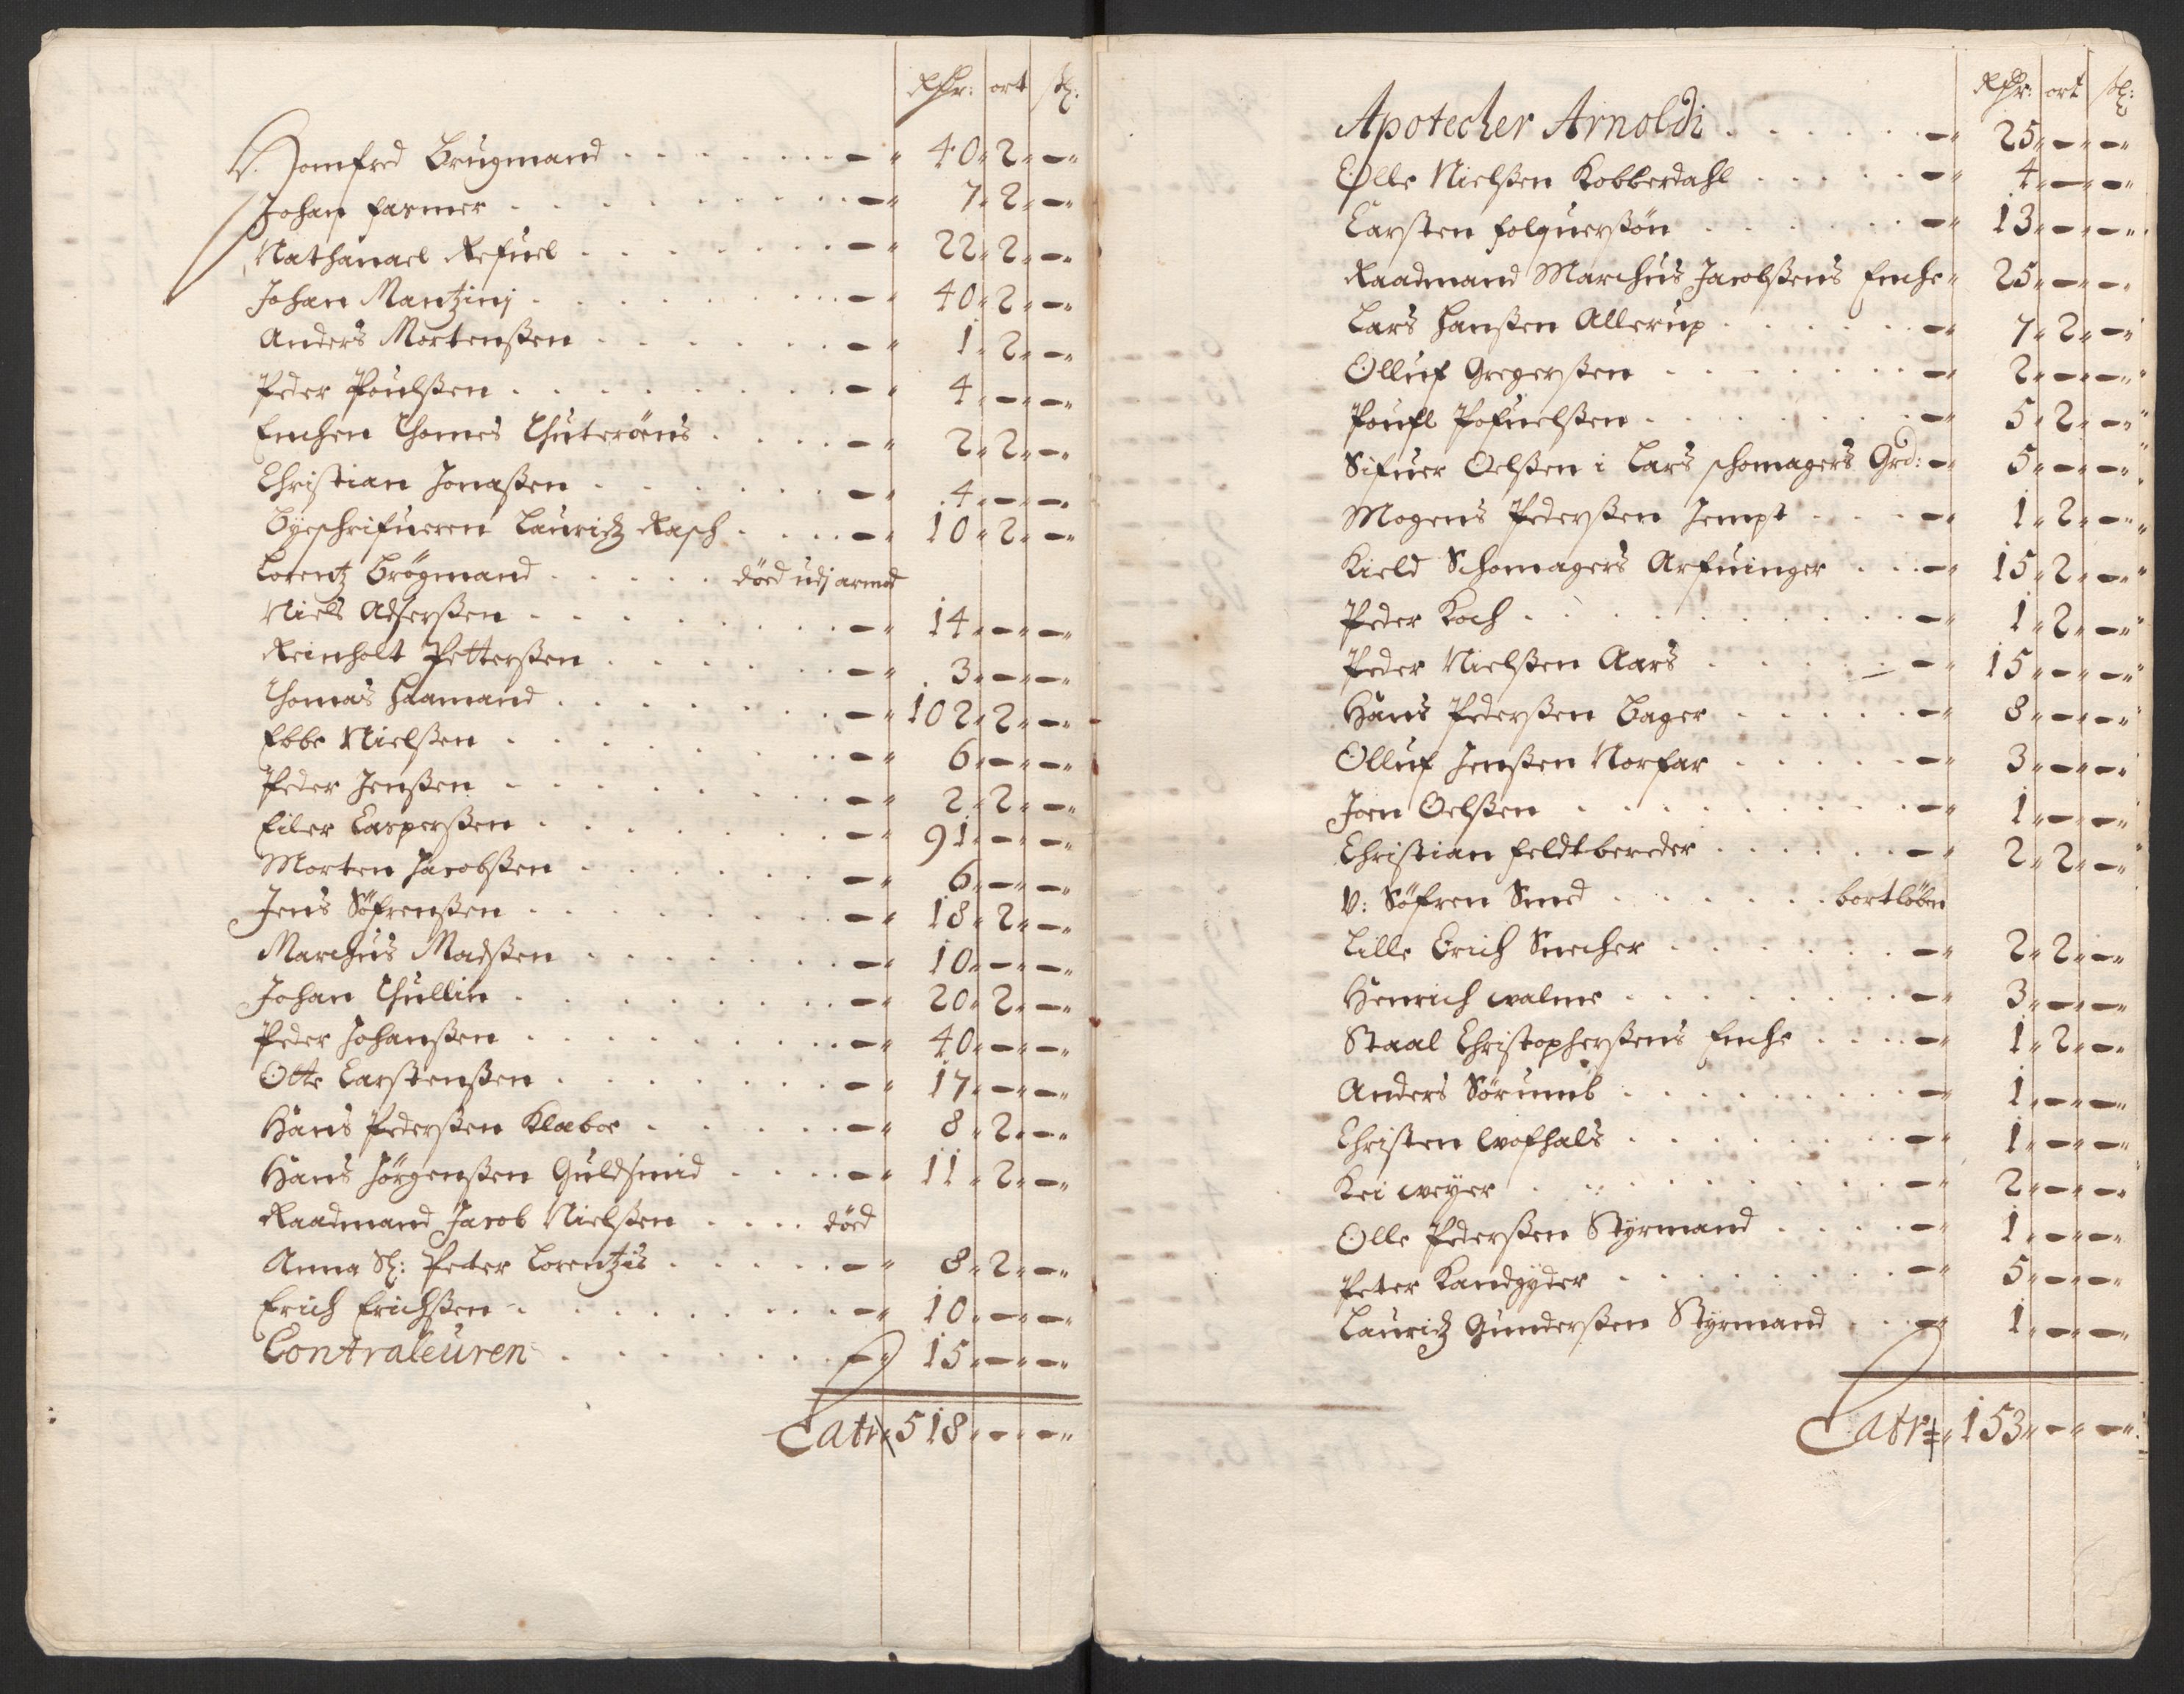 Rdr: ort sk:
Homfred Brugmand . . . . . . . — " 40 " 2 " — "
Johan Farmer . . . . . . . . — " 7 " 2 " — "
Nathanael Refuel . . . . . . — " 22 " 2 " — "
Johan Mantzinj . . . . . . . — " 40 " 2 " — "
Anders Mortenßen . . . . . . — " 1 " 2 " — "
Peder Poulßen . . . . . . . — " 4 " — " — "
Enchen Thomes Thuterøens . . . . — " 2 " 2 " — "
Christian Jonaßen . . . . . . — " 4 " — " — "
Byeschrifueren Lauridz Rasch . . . . — " 10 " 2 " — "
Lorentz Brøgmand . . . . . død udj armod
Niels Adserßen . . . . . . . — " 14 " — " — "
Reinholt Petterßen . . . . . — " 3 " — " — "
Thomas Hammand . . . . . . — " 102 " 2 " — "
Ebbe Nielßen . . . . . . . — " 6 " — " — "
Peder Jenßen . . . . . . . — " 2 " 2 " — "
Eiler Casperßen . . . . . . — " 91 " — " — "
Morten Jacobßen . . . . . . — " 6 " — " — "
Jens Søfrenßen . . . . . . . — " 18 " 2 " — "
Marchus Madßen . . . . . . — " 10 " — " — "
Johan Thullin . . . . . . . — " 20 " 2 " — "
Peder Johanßen . . . . . . . — " 40 " — " — "
Otte Carstenßen . . . . . . — " 17 " — " — "
Hans Pederßen Klæboe . . . . . — " 8 " 2 " — "
Hans Jørgenßen Guldsmid . . . . — " 11 " 2 " — "
Raadmand Jacob Nielßen . . . . død
Anna Sl: Peter Lorentzis . . . . . — " 8 " 2 " — "
Erich Erichßen . . . . . . . — " 10 " — " — "
Contraleuren . . . . . . . — " 15 " — " — "
Latr 518 " — " — "
Rdr: ort sk:
Apotecher Arnoldi . . . . . . — " 25 " — " — "
Olle Nielßen Kobberdahl . . . . . — " 4 " — " — "
Carsten Folquerßøn . . . . . . — " 13 " — " — "
Raadmand Marchus Jacobßens Enche " 25 " — " — "
Lars Hanßen Allerup . . . . . — " 7 " 2 " — "
Olluf Gregerßen . . . . . . — " 2 " — " — "
Poufl Pofuelßen . . . . . . — " 5 " 2 " — "
Sifuer Oelßen i Lars schomagers Grd: — " 5 " — " — "
Mogens Pederßen Jempt . . . . — " 1 " 2 " — "
Kield Schomagers Arfuinger . . . — " 15 " 2 " — "
Peder Koch . . . . . . . . — " 1 " 2 " — "
Peder Nielßen Aars . . . . . — " 15 " — " — "
Hans Pederßen Bager . . . . . — " 8 " — " — "
Olluf Jenßen Norfar . . . . . — " 3 " — " — "
Joen Oelßen . . . . . . . — " 1 " — " — "
Christian Feldtbereder . . . . . — " 2 " 2 " — "
V: Søfren Smed . . . . . . bortløben
Lille Erich Snecher . . . . . — " 2 " 2 " — "
Henrich Walmer . . . . . . — " 3 " — " — "
Staal Christopherßens Enche . . . . — " 1 " 2 " — "
Anders Sørumb . . . . . . . — " 1 " — " — "
Christen Wofhals . . . . . . — " 1 " — " — "
Kei Weyer . . . . . . . . — " 2 " — " — "
Olle Pederßen Styrmand . . . . — " 1 " — " — "
Peter Kandgyder . . . . . . — " 5 " — " — "
Lauridz Gunderßen Styrmand . . . — " 1 " — " — "
Latr " 153 " — " — "